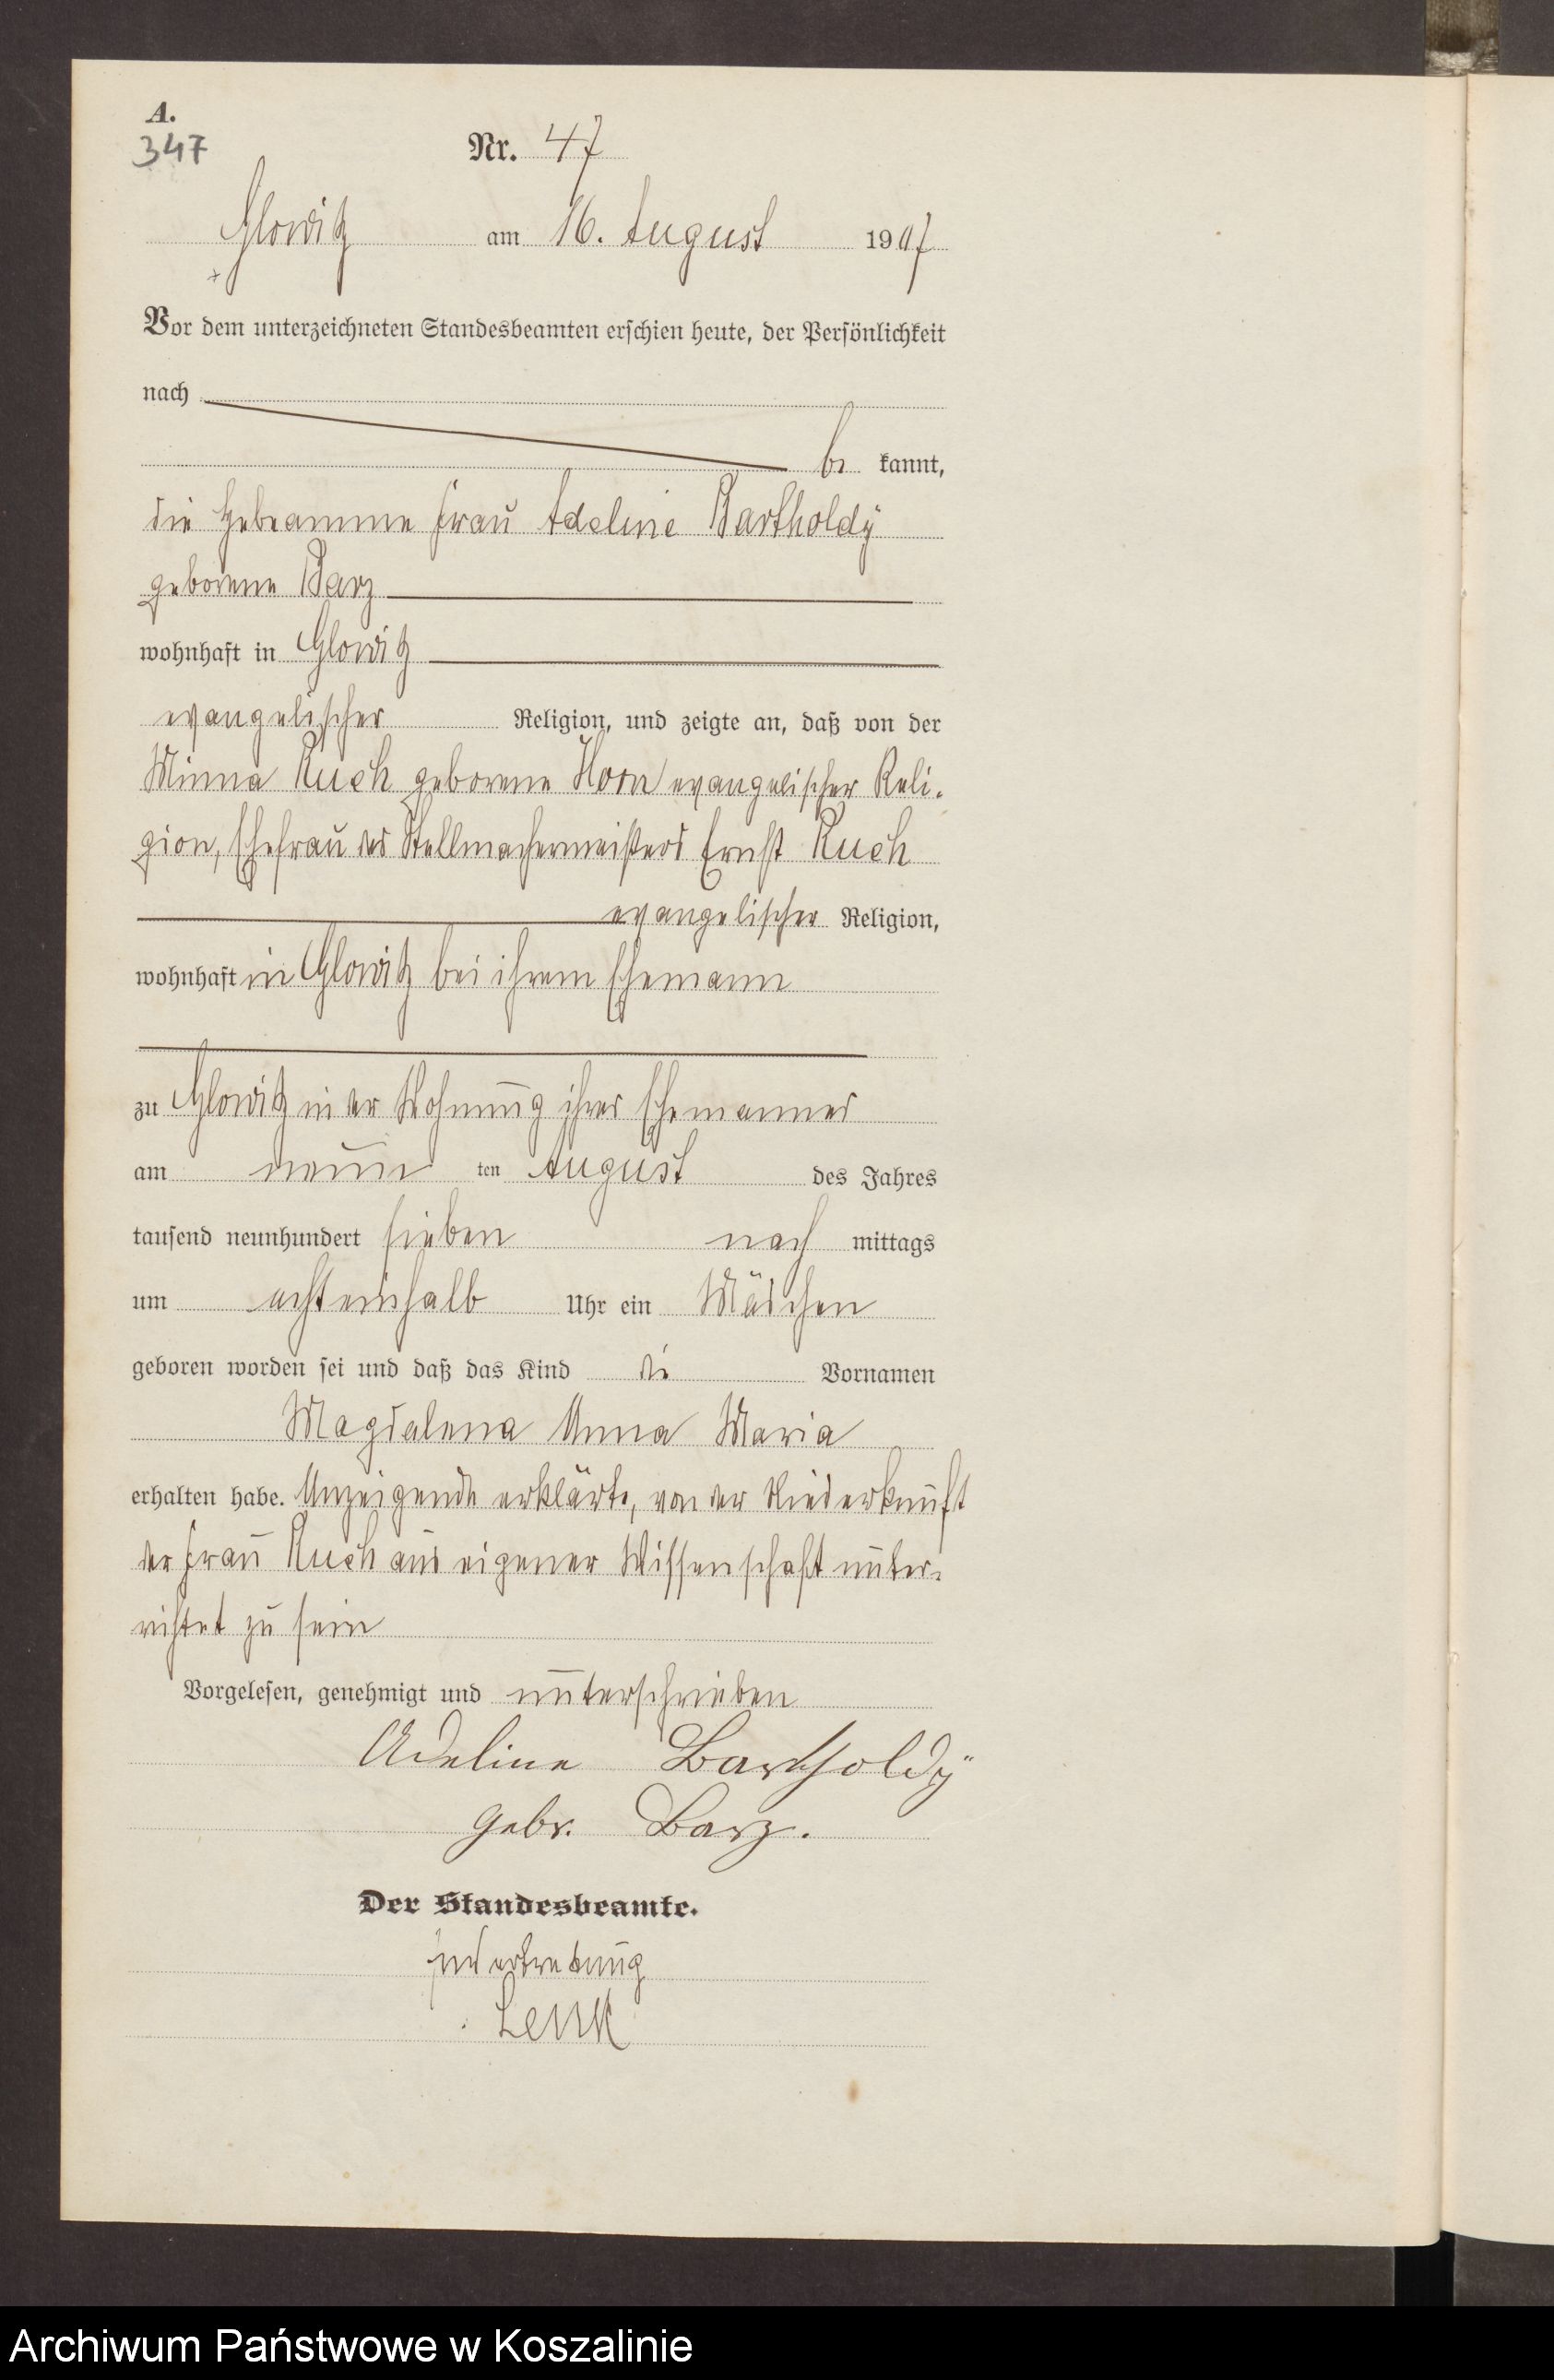 A.
347
Nr. 47
Glowitz am 16. August 1907
Vor dem unterzeichneten Standesbeamten erschien heute, der Persönlichkeit
nach
be kannt,
die Hebeamme Frau Adeline Bartholdÿ
geborene Barz
wohnhaft in Glowitz
evangelischer Religion, und zeigte an, daß von der
Minna Ruch geborene Horn evangelischer Reli-
gion, Ehefrau des Stellmachermeisters Ernst Ruch
evangelischer Religion,
wohnhaft in Glowitz bei ihrem Ehemann
zu Glowitz in der Wohnung ihres Ehemannes
am neun ten August des Jahres
tausend neunhundert sieben nach mittags
um achteinhalb Uhr ein Mädchen
geboren worden sei und daß das Kind die Vornamen
Magdalena Anna Maria
erhalten habe. Anzeigende erklärte, von der Niederkunft
der Frau Ruch aus eigener Wissenschaft unter-
richtet zu sein
Vorgelesen, genehmigt und unterschrieben
Adeline Bartholdÿ
gebr. Barz.
Der Standesbeamte.
In Vertretung
Lenk
Archiwum Państwowe w Koszalinie